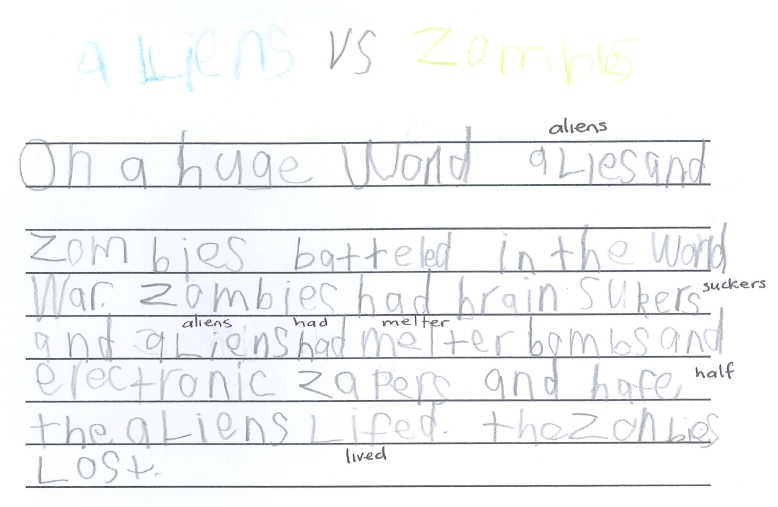 ALiens VS Zombies
aliens
On a huge World aLiesand
Zom bies batteled in the World
War. Zombies had brain sukers suckers
aliens had melter
and aLiens had melter bombs and
electronic zapers and hafe half
the aLiens Lifed. the Zonbies
lived
Lost.